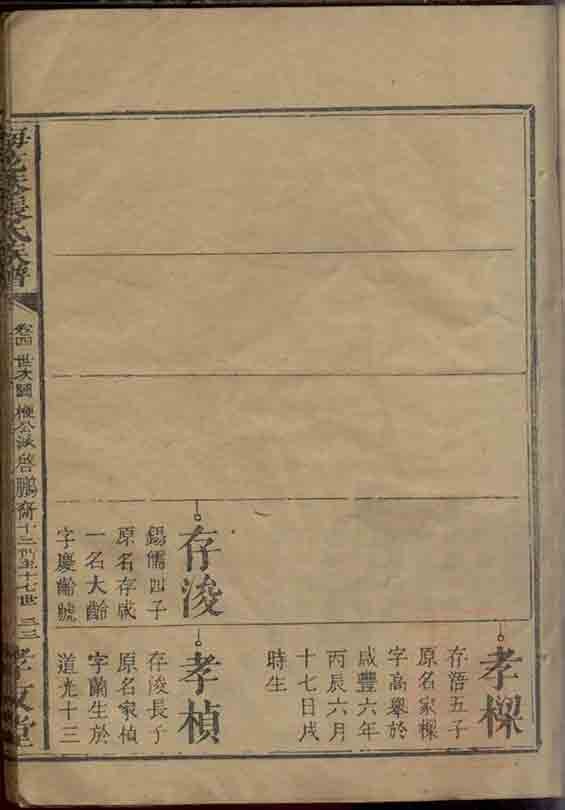 孝樑
存浯五子
原名家樑
字高舉於
咸豐六年
丙辰六月
十七日戌
時生
存浚
錫儒四子
原名存咸
一名大齡
字慶齡號
孝楨
存浚長子
原名家楨
字蘭生於
道光十三
張氏族譜
卷四 世次圖 梗公派 啓鵬齋 十二世至十七世
孝友堂